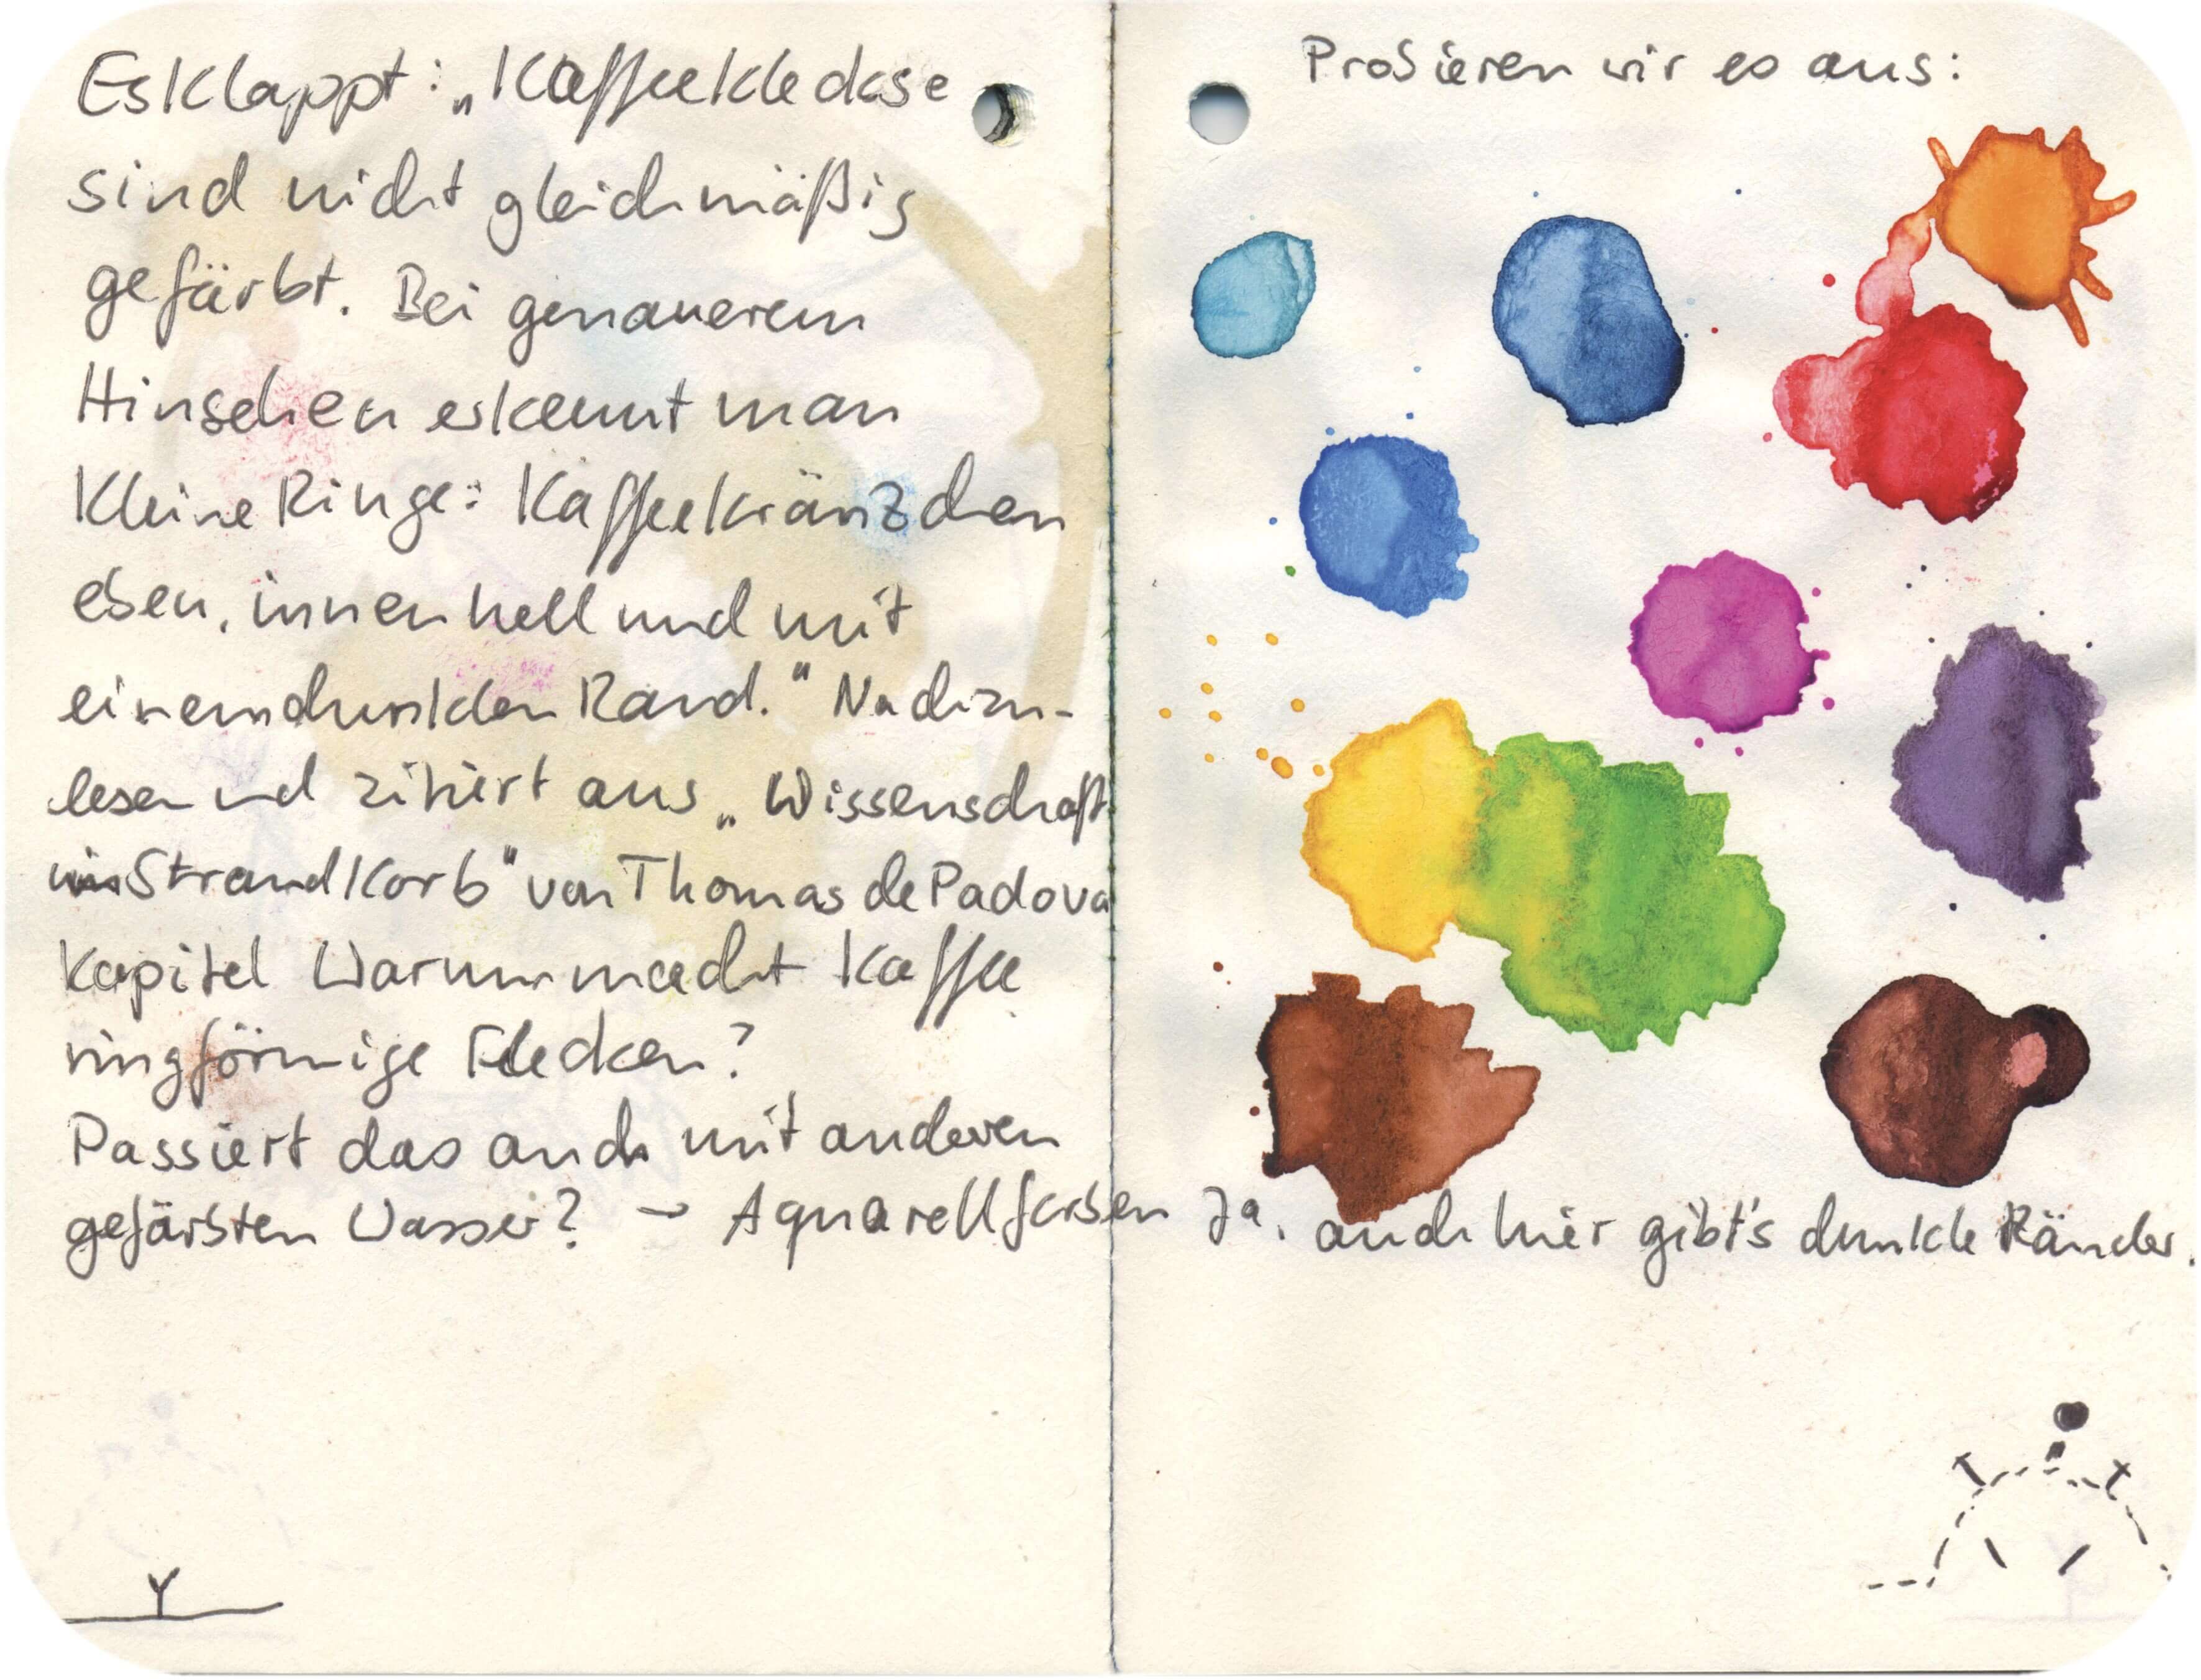 Es klappt: „Kaffeekleckse
sind nicht gleichmäßig
gefärbt. Bei genauerem
Hinsehen erkennt man
kleine Ringe: Kaffeekränzchen
eben, innen hell und mit
einem dunklen Rand." Nachzu-
lesen und zitiert aus „Wissenschaft
im Strandkorb" von Thomas de Padova
Kapitel Warum macht Kaffee
ringförmige Flecken?
Passiert das auch mit anderen
gefärbten Wasser? → Aquarellfarben
Probieren wir es aus:
Ja, auch hier gibt's dunkle Ränder.